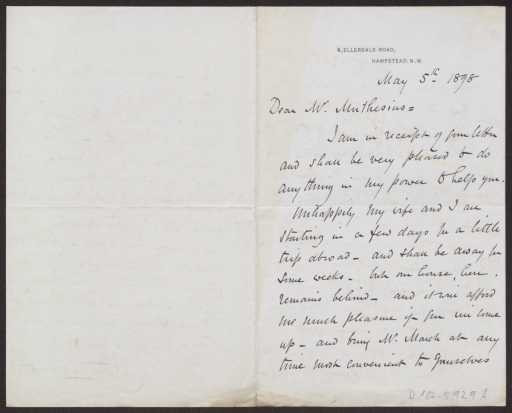 6, ELLERDALE ROAD,
HAMPSTEAD. N.W.
May 5th 1898
Dear Mr. Muthesius =
I am in receipt of your letter
and shall be very pleased to do
anything in my power to help you.
Unhappily my wife and I are
starting in a few days for a little
trip abroad - and shall be away for
some weeks - but our house, here,
remains behind - and it will afford
me much pleasure if you will come
up - and bring Mr. March at any
time most convenient to yourselves